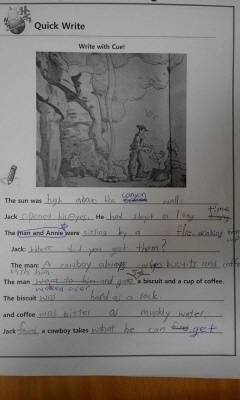 Quick Write
Write with Cue!
canyon
The sun was high above the wall.
time
Jack opened his eyes. He had slept a long
The man and Annie were sitting by a fire. drinking
Jack: Where did you get them?
The man: A cowboy always carries biscuits and coffee
with him.
Jack
The man went to him and gave a biscuit and a cup of coffee.
walked over
The biscuit was hard as a rock.
and coffee was bitter as muddy water.
Jack found a cowboy takes what he can get